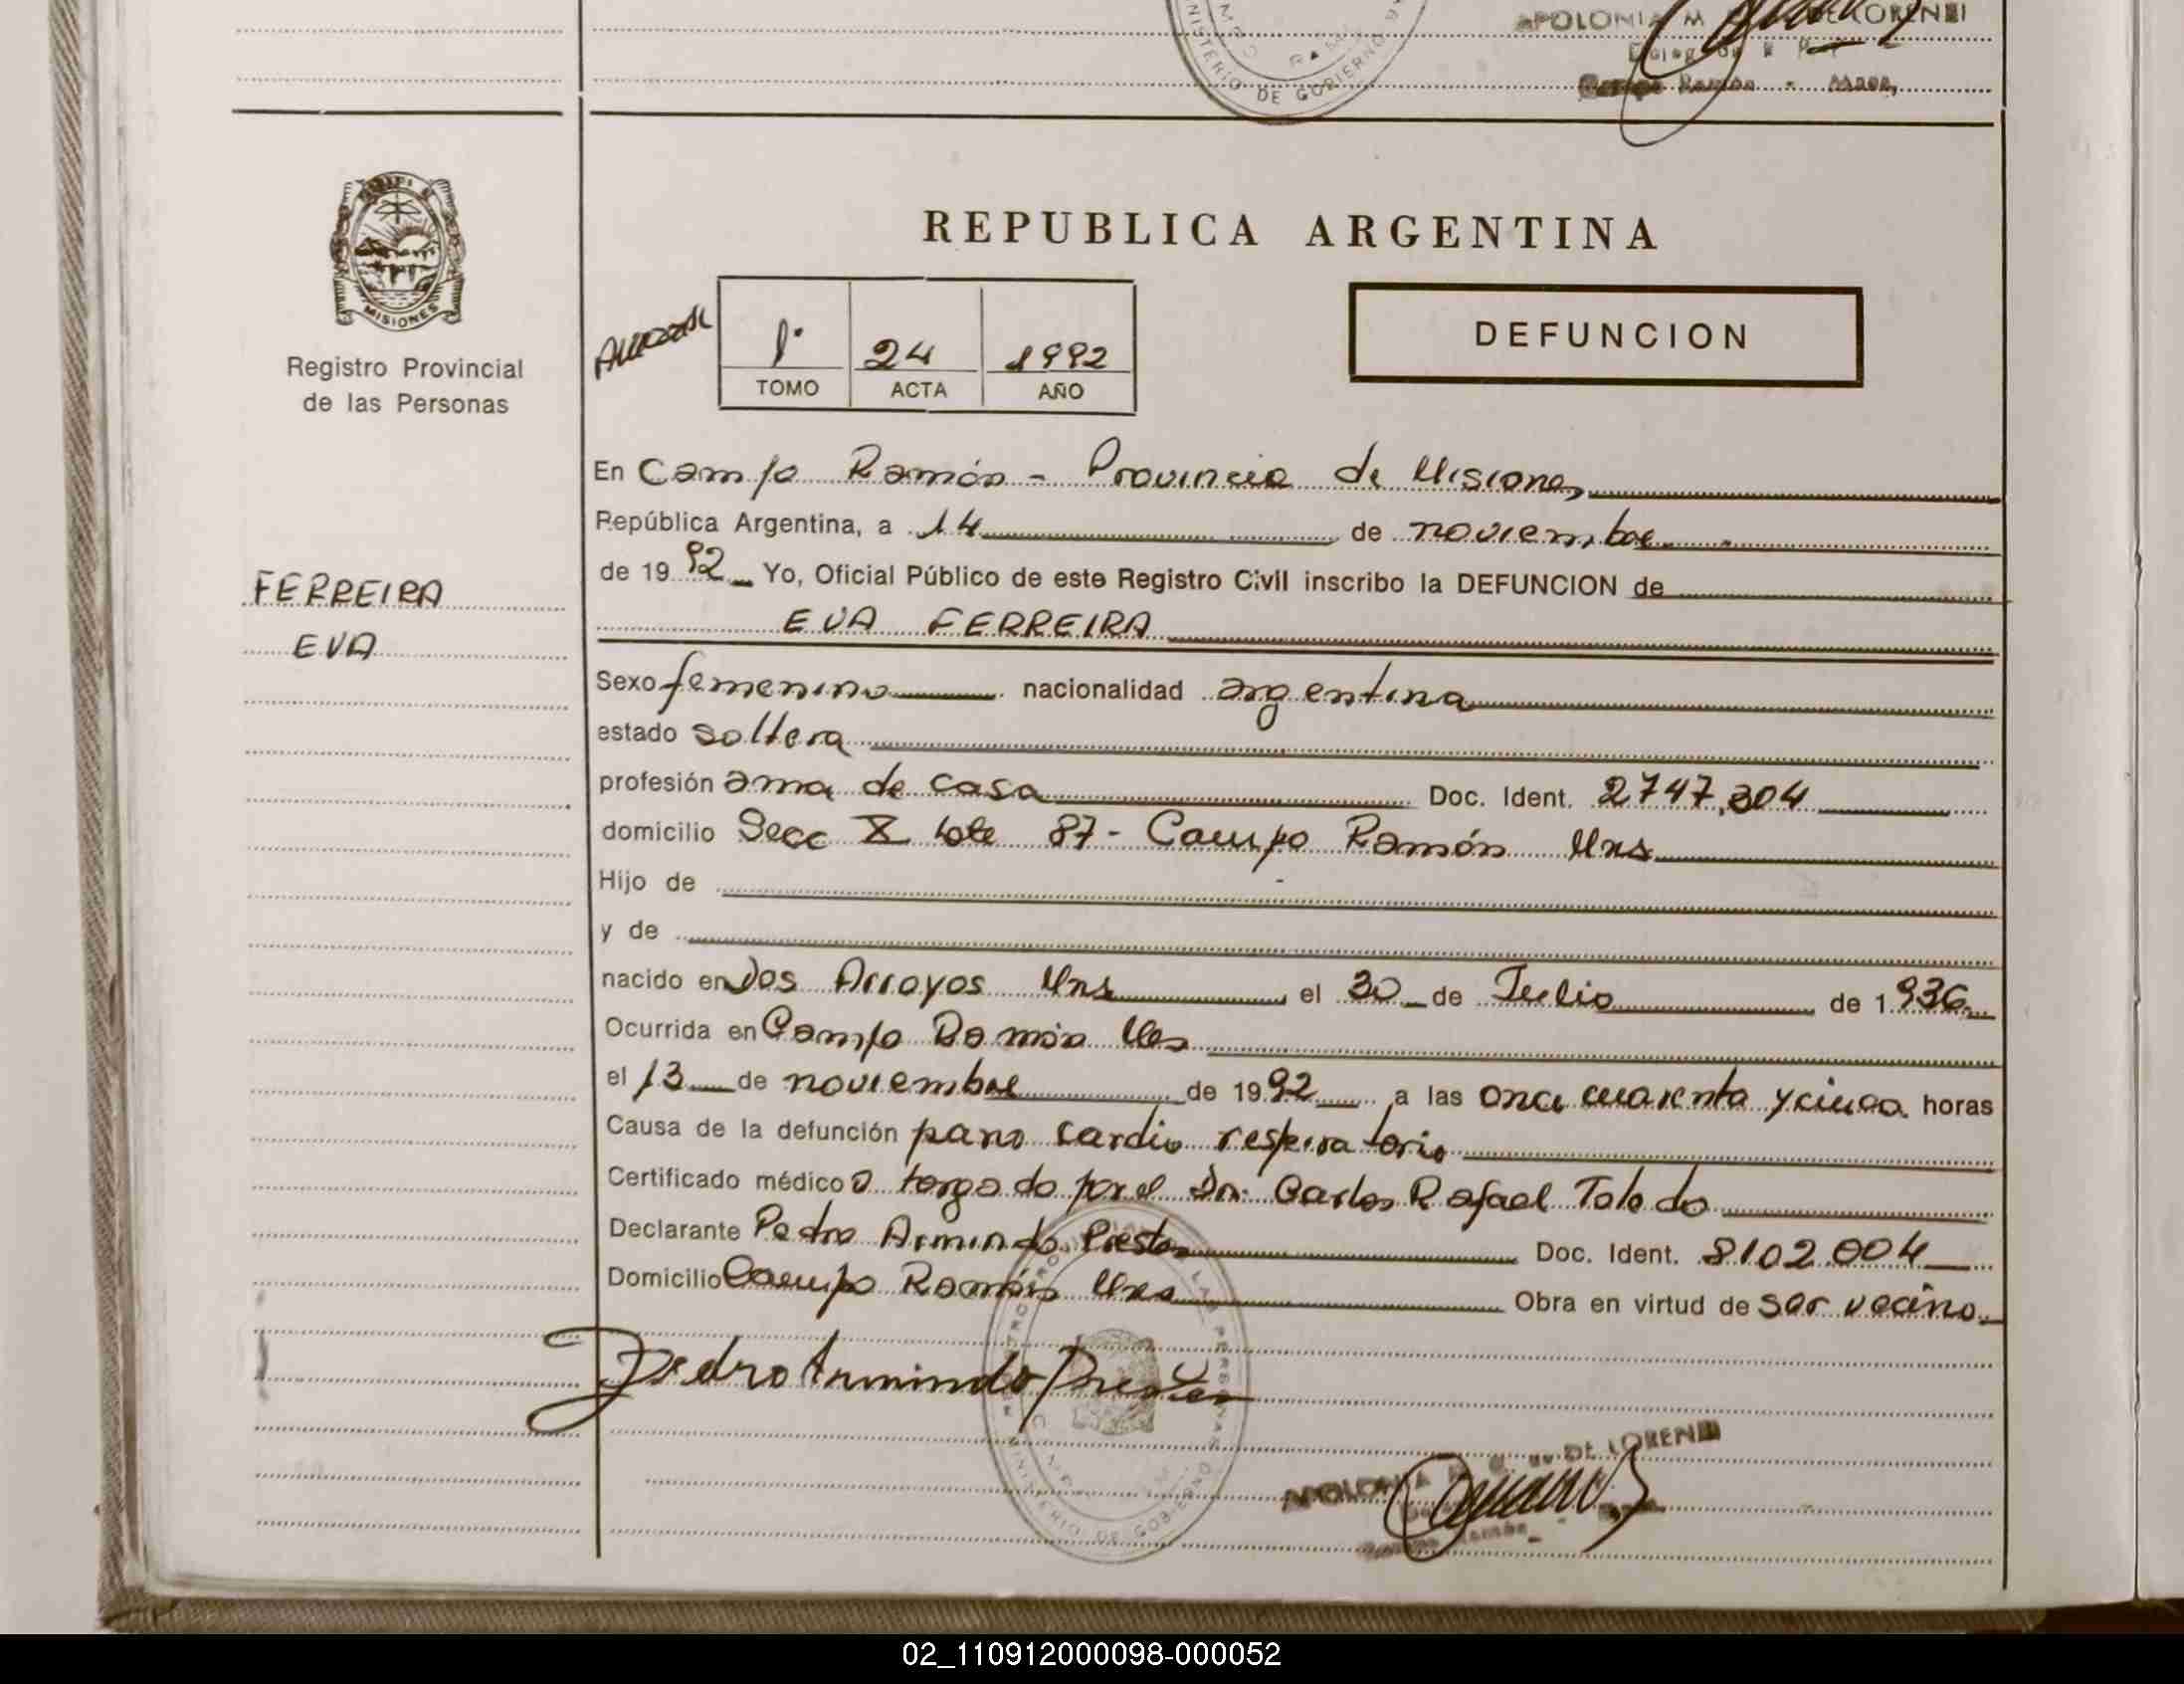 MINISTERIO DE GOBIERNO
APOLONIA M DE LORENZI
Campo Ramón - Mnes.
MISIONES
Registro Provincial
de las Personas
REPUBLICA ARGENTINA
1° 24 1992
TOMO ACTA AÑO
DEFUNCION
En Campo Ramón - Provincia de Misiones
República Argentina, a 14 de noviembre
de 1992 Yo, Oficial Público de este Registro Civil inscribo la DEFUNCION de
FERREIRA
EVA
EVA FERREIRA
Sexo femenino nacionalidad argentina
estado soltera
profesión ama de casa Doc. Ident. 2747.304
domicilio Secc X lote 87 - Campo Ramón Mns
Hijo de
y de
nacido en Dos Arroyos Mns el 30 de Julio de 1936
Ocurrida en Campo Ramón Mns
el 13 de noviembre de 1992 a las once cuarenta y cinco horas
Causa de la defunción paro cardio respiratorio
Certificado médico otorgado por el Dr. Carlos Rafael Toledo
Declarante Pedro Armindo Prestes Doc. Ident. 8102.004
Domicilio Campo Ramón Mns Obra en virtud de ser vecino
Pedro Armindo Prestes
MINISTERIO DE GOBIERNO
APOLONIA DE LORENZI
02_110912000098-000052